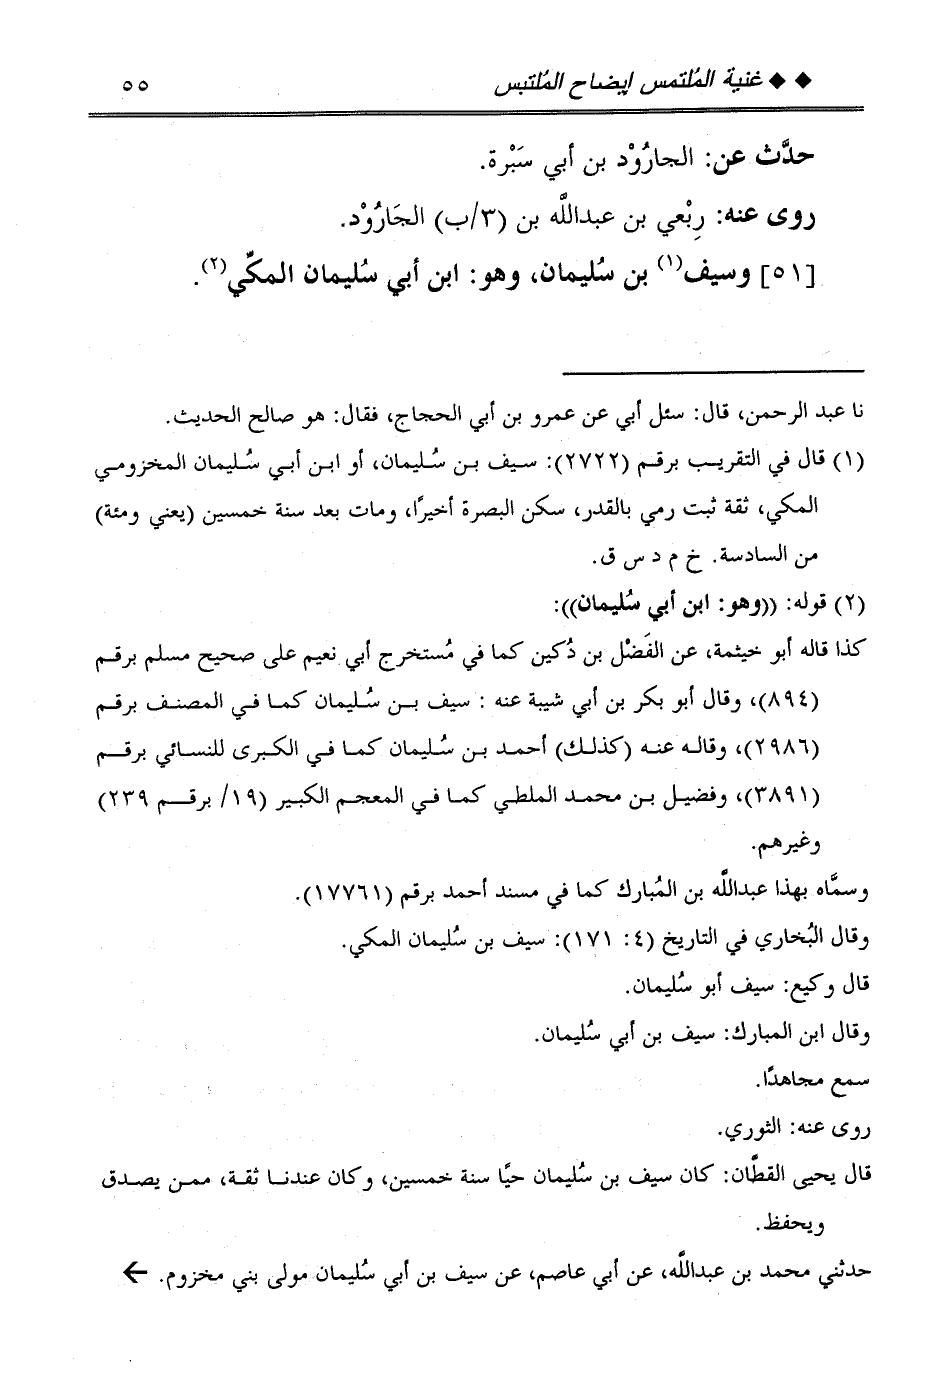 ◆◆ غنية المُلتمس إيضاح المُلتبس ٥٥
حدَّث عن: الجارُوْد بن أبي سَبْرة.
روى عنه: رِبْعي بن عبدالله بن (٣/ب) الجَارُوْد.
[٥١] وسيف(١) بن سُليمان، وهو: ابن أبي سُليمان المكّي(٢).
نا عبد الرحمن، قال: سئل أبي عن عمرو بن أبي الحجاج، فقال: هو صالح الحديث.
(١) قال في التقريب برقم (٢٧٢٢): سيف بن سُليمان، أو ابن أبي سُليمان المخزومي
المكي، ثقة ثبت رمي بالقدر، سكن البصرة أخيرًا، ومات بعد سنة خمسين (يعني ومئة)
من السادسة. خ م د س ق.
(٢) قوله: ((وهو: ابن أبي سُليمان)):
كذا قاله أبو خيثمة، عن الفَضْل بن دُكين كما في مُستخرج أبي نعيم على صحيح مسلم برقم
(٨٩٤)، وقال أبو بكر بن أبي شيبة عنه : سيف بن سُليمان كما في المصنف برقم
(٢٩٨٦)، وقاله عنه (كذلك) أحمد بن سُليمان كما في الكبرى للنسائي برقم
(٣٨٩١)، وفضيل بن محمد الملطي كما في المعجم الكبير (١٩/ برقم ٢٣٩)
وغيرهم.
وسمَّاه بهذا عبدالله بن المُبارك كما في مسند أحمد برقم (١٧٧٦١).
وقال البُخاري في التاريخ (٤: ١٧١): سيف بن سُليمان المكي.
قال وكيع: سيف أبو سُليمان.
وقال ابن المبارك: سيف بن أبي سُليمان.
سمع مجاهدًا.
روى عنه: الثوري.
قال يحيى القطَّان: كان سيف بن سُليمان حيًا سنة خمسين، وكان عندنا ثقة، ممن يصدق
ويحفظ.
حدثني محمد بن عبدالله، عن أبي عاصم، عن سيف بن أبي سُليمان مولى بني مخزوم. ←